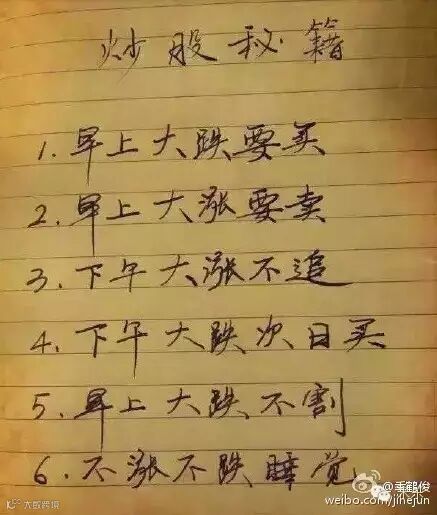 炒股秘籍
1. 早上大跌要买
2. 早上大涨要卖
3. 下午大涨不追
4. 下午大跌次日买
5. 早上大跌不割
6. 不涨不跌睡觉
大数跨境
@季鹤俊
weibo.com/jihejun